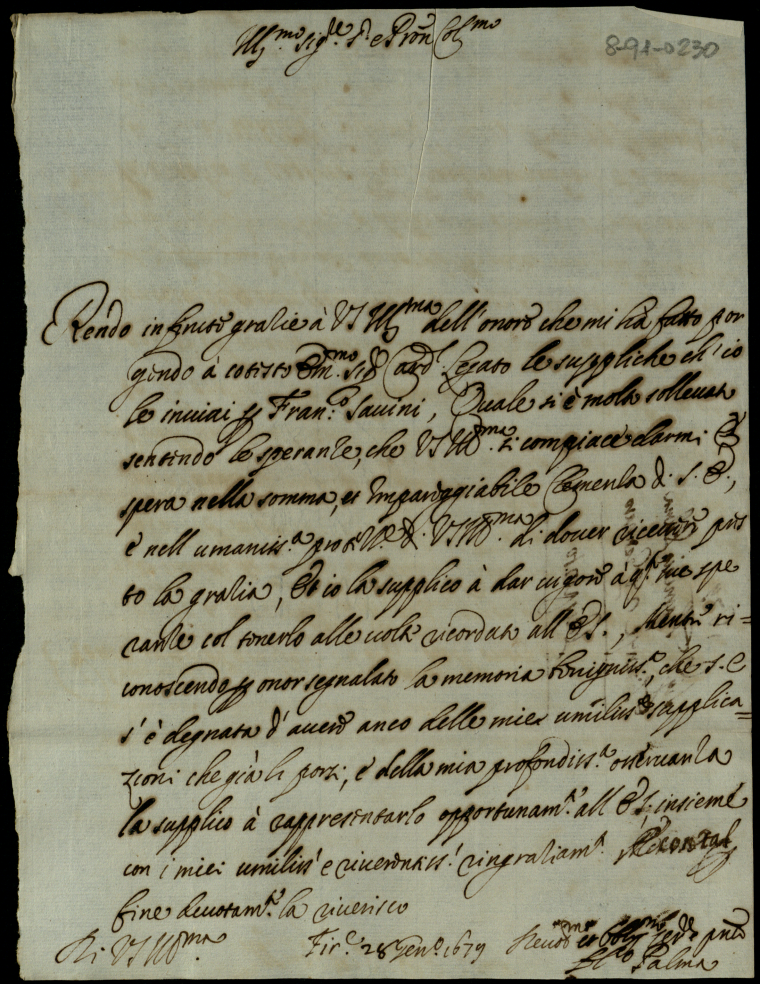 Ill.mo Sig.re S.r e Pron Col.mo
8-91-0230
Rendo infinite gratie à VS Ill.ma dell'onore che mi hà fatto por
gendo à cotesto Em.mo Sig.r Card. Legato le suppliche ch'io
le inviai p Fran.o Savini, Quale si è molto sollevata
sentendo le speranze, che VS Ill.ma si compiace darmi
spera nella somma, et impareggiabile Clemenza di S. E.,
e nell umaniss.a VS Ill.ma di dover ricevere pres
to la gratia, Et io la supplico à dar vigore à q.te sue spe
ranze col tenerlo alle volte ricordato all' ES., Mentre ri=
conoscendo p onor segnalato la memoria beniguiss.a, che S. E
s'è degnata d'avere anco delle miei umiliss.e supplica=
zioni che già li porsi, e della mia profondiss.a osservanza
la supplico à rappresentarlo opportunam.te all' ES, insieme
con i miei umiliss.i e riverentiss.i ringratiam.ti
fine devotam.te la riverisco
Di VS Ill.ma
Fir.e 28 Gen.o 1679
Devot.mo et Obl.mo
Palma